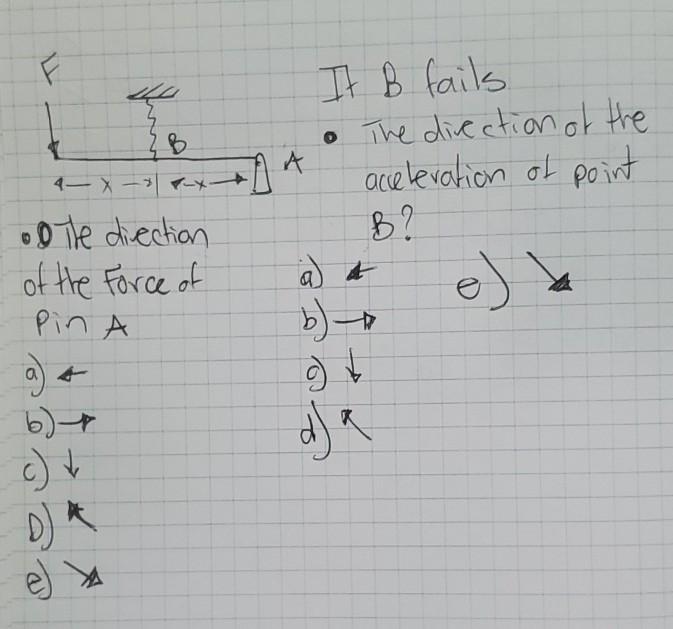 F
If B fails
B
• The direction of the
A
x
x
acceleration of point
B?
• The direction
of the Force of
Pin A
a) ←
b) →
c) ↓
D) ↖
e) ↘
a) ←
b) →
c) ↓
d) ↖
e) ↘